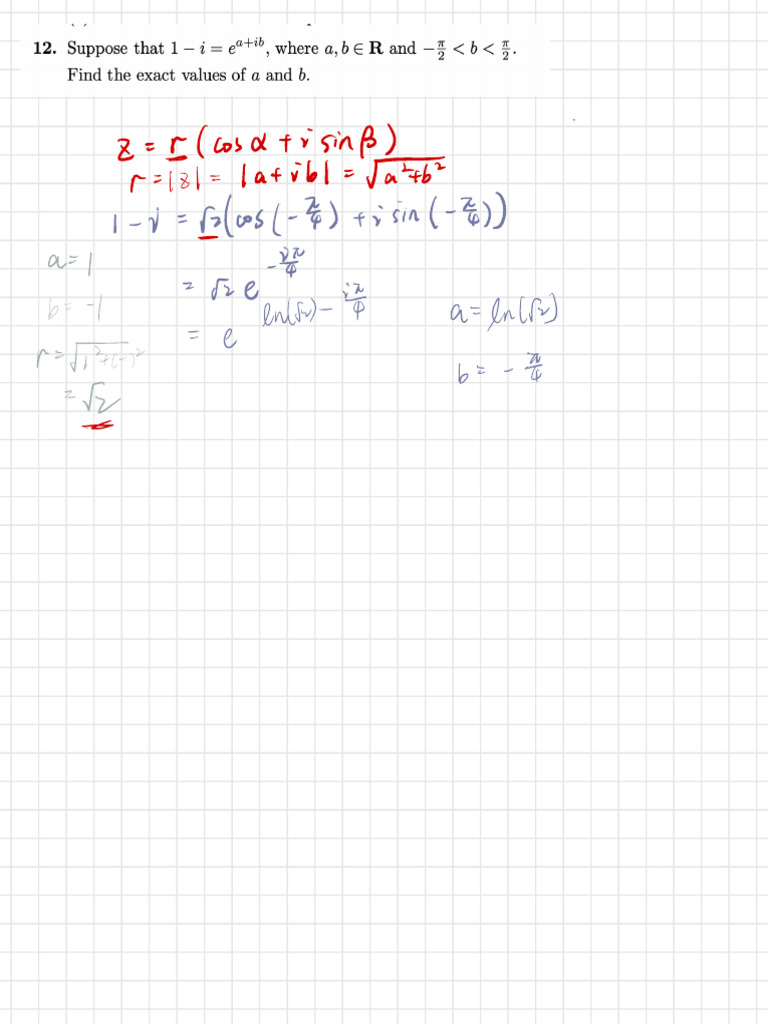 12. Suppose that 1 − i = e^{a+ib}, where a, b ∈ R and −π/2 < b < π/2.
Find the exact values of a and b.
z = r ( cos α + i sin β )
r = |z| = |a + ib| = √(a² + b²)
1 − i = √2 ( cos ( − π/4 ) + i sin ( − π/4 ) )
a = 1
= √2 e^{− iπ/4}
b = −1
= e^{ln(√2) − iπ/4}
a = ln(√2)
r = √(1² + (−1)²)
b = − π/4
= √2